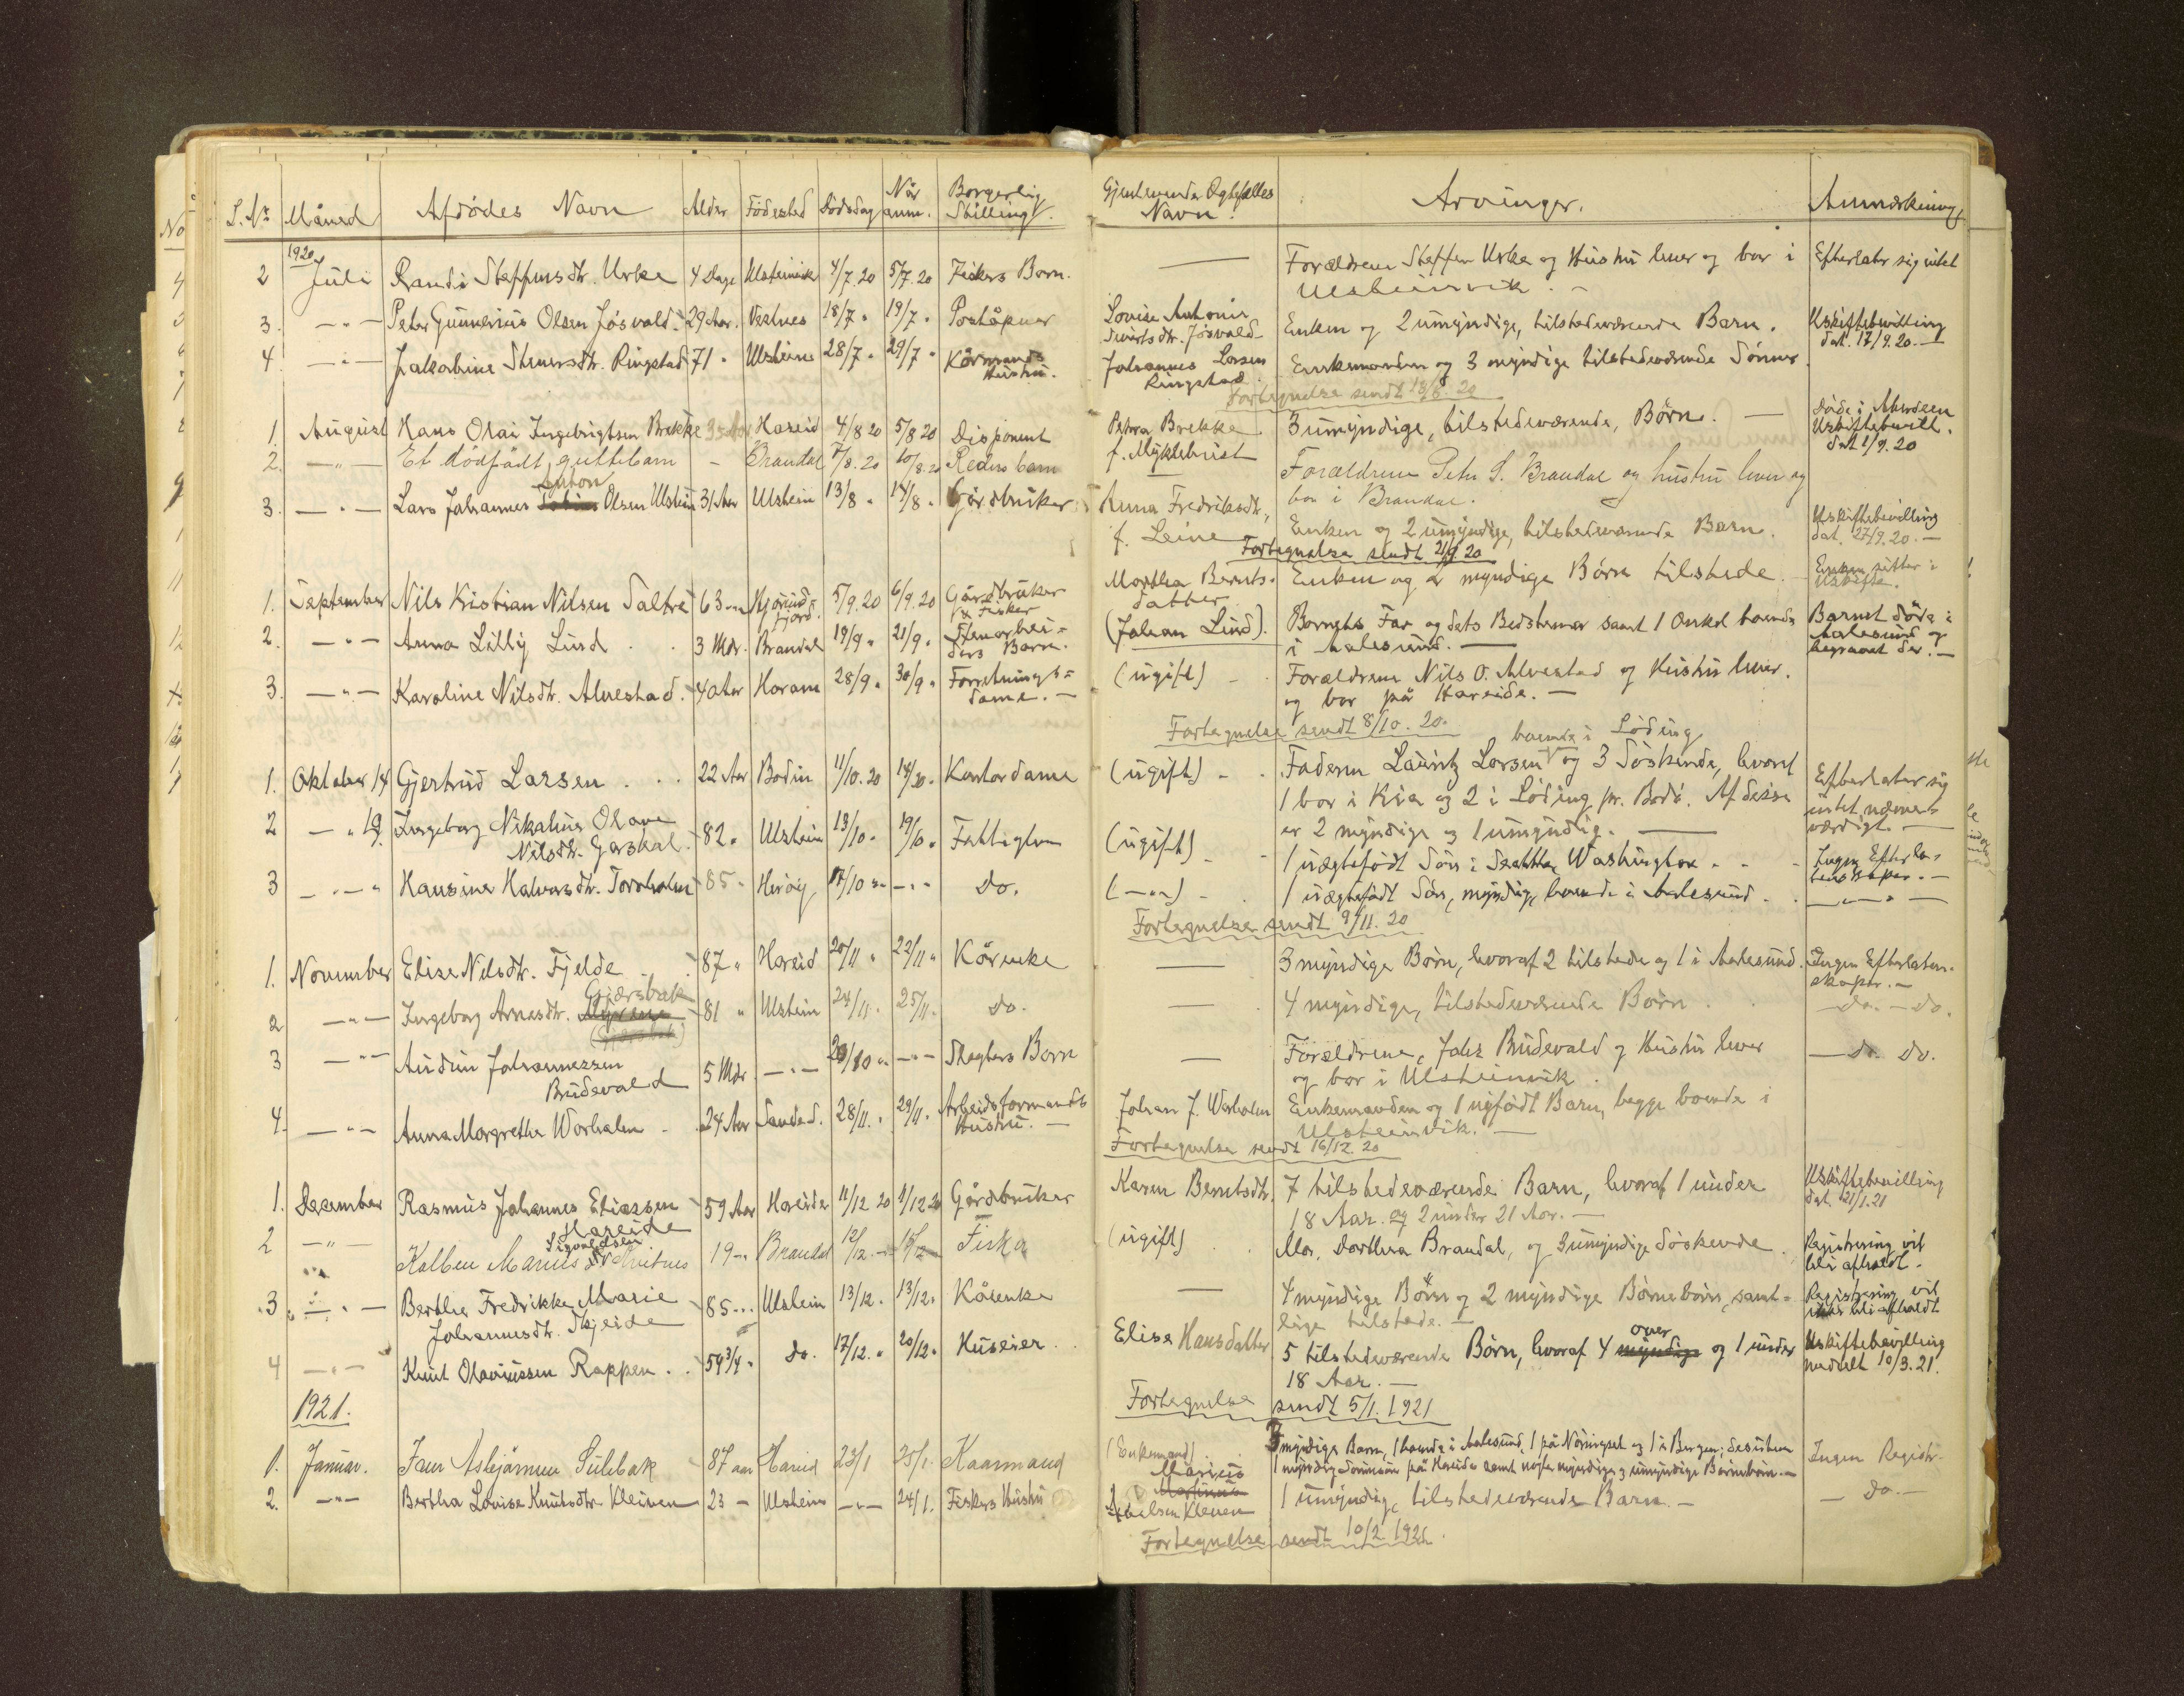 L. Nr Måned Afdödes Navn Alder Födested Dödsdag Når anm. Borgerlig Stilling Gjenlevende Ægtefælles Navn. Arvinger. Anmærkning
1920
2 Juli Randi Steffensdtr. Urke 4 Dage Ulsteinvik 4/7.20 5/7.20 Fiskers Barn. — Forældrene Steffen Urke og Hustru lever og bor i Efterlater sig intet
Ulsteinvik. -
3. —"— Peter Gunnerius Olsen Jösvald 29 Aar. Vestnes 18/7 " 19/7 " Postöpner Lovise Antonie Enken og 2 umyndige, tilstedeværende Barn. Uskiftebevilling
Sivertsdtr. Jösvald dat. 17/9.20.—
4. —"— Jakobine Steinersdtr. Ringstad 71 " Ulstein 28/7 " 29/7 " Kårmands Johannes Larsen Enkemanden og 3 myndige tilstedeværende Sönner.
Hustru. Ringstad.
Fortegnelse sendt 18/8.20
1. August Hans Olai Ingebrigtsen Brekke 35 Aar Hareid 4/8 20 5/8 20 Disponent Petra Brekke 3 umyndige, tilstedeværende, Börn. — Döde i Aberdeen
f. Myklebust Uskiftebevill.
dat 1/9.20
2. —"— Et dödfödt guttebarn - Brandal 7/8.20 10/8.20 Reders barn — Forældrene Peter S. Brandal og hustru lever og
bor i Brandal.
Anton
3. —"— Lars Johannes Olsen Ulstein 31 Aar Ulstein 13/8 " 14/8 " Gårdbruker Anna Fredriksdtr., Enken og 2 umyndige, tilstedeværende Barn. Uskiftebevilling
f. Leine dat. 27/9.20.—
Fortegnelse sendt 21/9 20
1. September Nils Kristian Nilsen Saltre 63 — Hjörund- 5/9.20 6/9.20 Gårdbruker Martha Bernts- Enken og 2 myndige Börn tilstede. Enken sitter i
fjord. & Fisker datter uskifte.
2. —"— Anna Lilly Lund 3 Mdr. Brandal 19/9 " 21/9 " Stenarbei- (Johan Lund). Barnets Far og dets Bedstemor samt 1 Onkel boende Barnet döde i
ders Barn. i Aalesund. — Aalesund og
begravet der.—
3. —"— Karoline Nilsdtr. Alvestad. 40 Aar Haram 28/9 " 30/9 " Forretnings- (ugift) - Forældrene Nils O. Alvestad og Hustru lever.
dame.— og bor på Hareide.—
Fortegnelse sendt 8/10.20.
boende i Löding
1. Oktober 14 Gjertrud Larsen 22 Aar Bodin 11/10.20 14/10. Kontordame (ugift) - Faderen Lauritz Larsen og 3 Söskende, hvoraf Efterlater sig
1 bor i Kria og 2 i Löding pr. Bodö. Af disse intet nævne-
er 2 myndige og 1 umyndig. — værdigt.—
2 — " 19. Ingeborg Nikoline Olave 82 " Ulstein 13/10 " 19/10 " Fattiglem (ugift) - 1 uægtefödt Sön i Seattle Washington - - Ingen Efterla-
Nilsdtr. Garshal. tenskaper.—
3 —"— Hansine Halvorsdtr. Torvholm 85 " Heröy 14/10 " —"— Do. (—"—) - 1 uægtefödt Sön, myndig, boende i Aalesund. —"—
Fortegnelse sendt 9/11.20
1. November Elise Nilsdtr. Fjelde 87 " Hareid 20/11 " 22/11 " Kårenke — 3 myndige Börn, hvoraf 2 tilstede og 1 i Aalesund. Ingen Efterlaten-
skaper.—
Gjærsbak
2 —"— Ingeborg Arnesdtr. 81 " Ulstein 24/11 " 25/11 " Do. — 4 myndige, tilstedeværende Börn —Do.—Do.
3 —"— Audun Johannessen 5 Mdr. —"— 29/10 " —"— Slagters Barn — Forældrene, Johs Budevald og Hustru lever —Do. Do.
Budevald og bor i Ulsteinvik.
4. —"— Anna Margrethe Worholm 24 Aar Sandød. 28/11. " 29/11. " Arbeidsformands Johan J. Worholm Enkemanden og 1 nyfödt Barn, begge boende i
Hustru.— Ulsteinvik.—
Fortegnelse sendt 16/12.20
1. December Rasmus Johannes Eliassen 59 Aar Hareide 11/12 20 11/12 20 Gårdbruker Karen Berntsdtr. 7 tilstedeværende Barn, hvoraf 1 under Uskiftebevilling
Hareide 18 Aar. og 2 under 21 Aar.— dat. 21/1.21
Sigvaldsen
2 —"— Kolben Marius 19 — Brandal 12/12.— Fisker (ugift) Mor, Dorthea Brandal, og 3 umyndige Söskende Registrering vil
bli afholdt.
3 —"— Berthe Fredrikke Marie 85 " Ulstein 13/12 " 13/12 " Kårenke — 4 myndige Börn og 2 myndige Börnebörn, samt- Registrering vil
Johannesdtr. Skjeide lige tilstede.— ikke bli afholdt
4 —"— Knut Olaviussen Rappen 59 3/4 " do. 17/12. " 20/12 " Huseier Elise Hansdatter 5 tilstedeværende Börn, hvoraf 4 over myndige og 1 under Uskiftebevilling
18 Aar.— meddelt 10/3.21.
1921. Fortegnelse sendt 5/1.1921
1. Januar. Jens Asbjörnsen Sulebak 87 aar Hareid 23/1 25/1. Kaarmand (Enkemand) 3 myndige Barn, 1 boende i Aalesund, 1 på Nörvingset og 1 i Bergen; desuten Ingen Registr.
1 myndig Sönnesön på Hareide samt nogle myndige og umyndige Börnebörn.—
2. —"— Bertha Lovise Knutsdtr. Kleiven 23 — Ulstein —"— 24/1. Fiskers Hustru Marius 1 umyndig, tilstedeværende Barn.— —Do.—
Kleven
Fortegnelse sendt 10/2 1921.